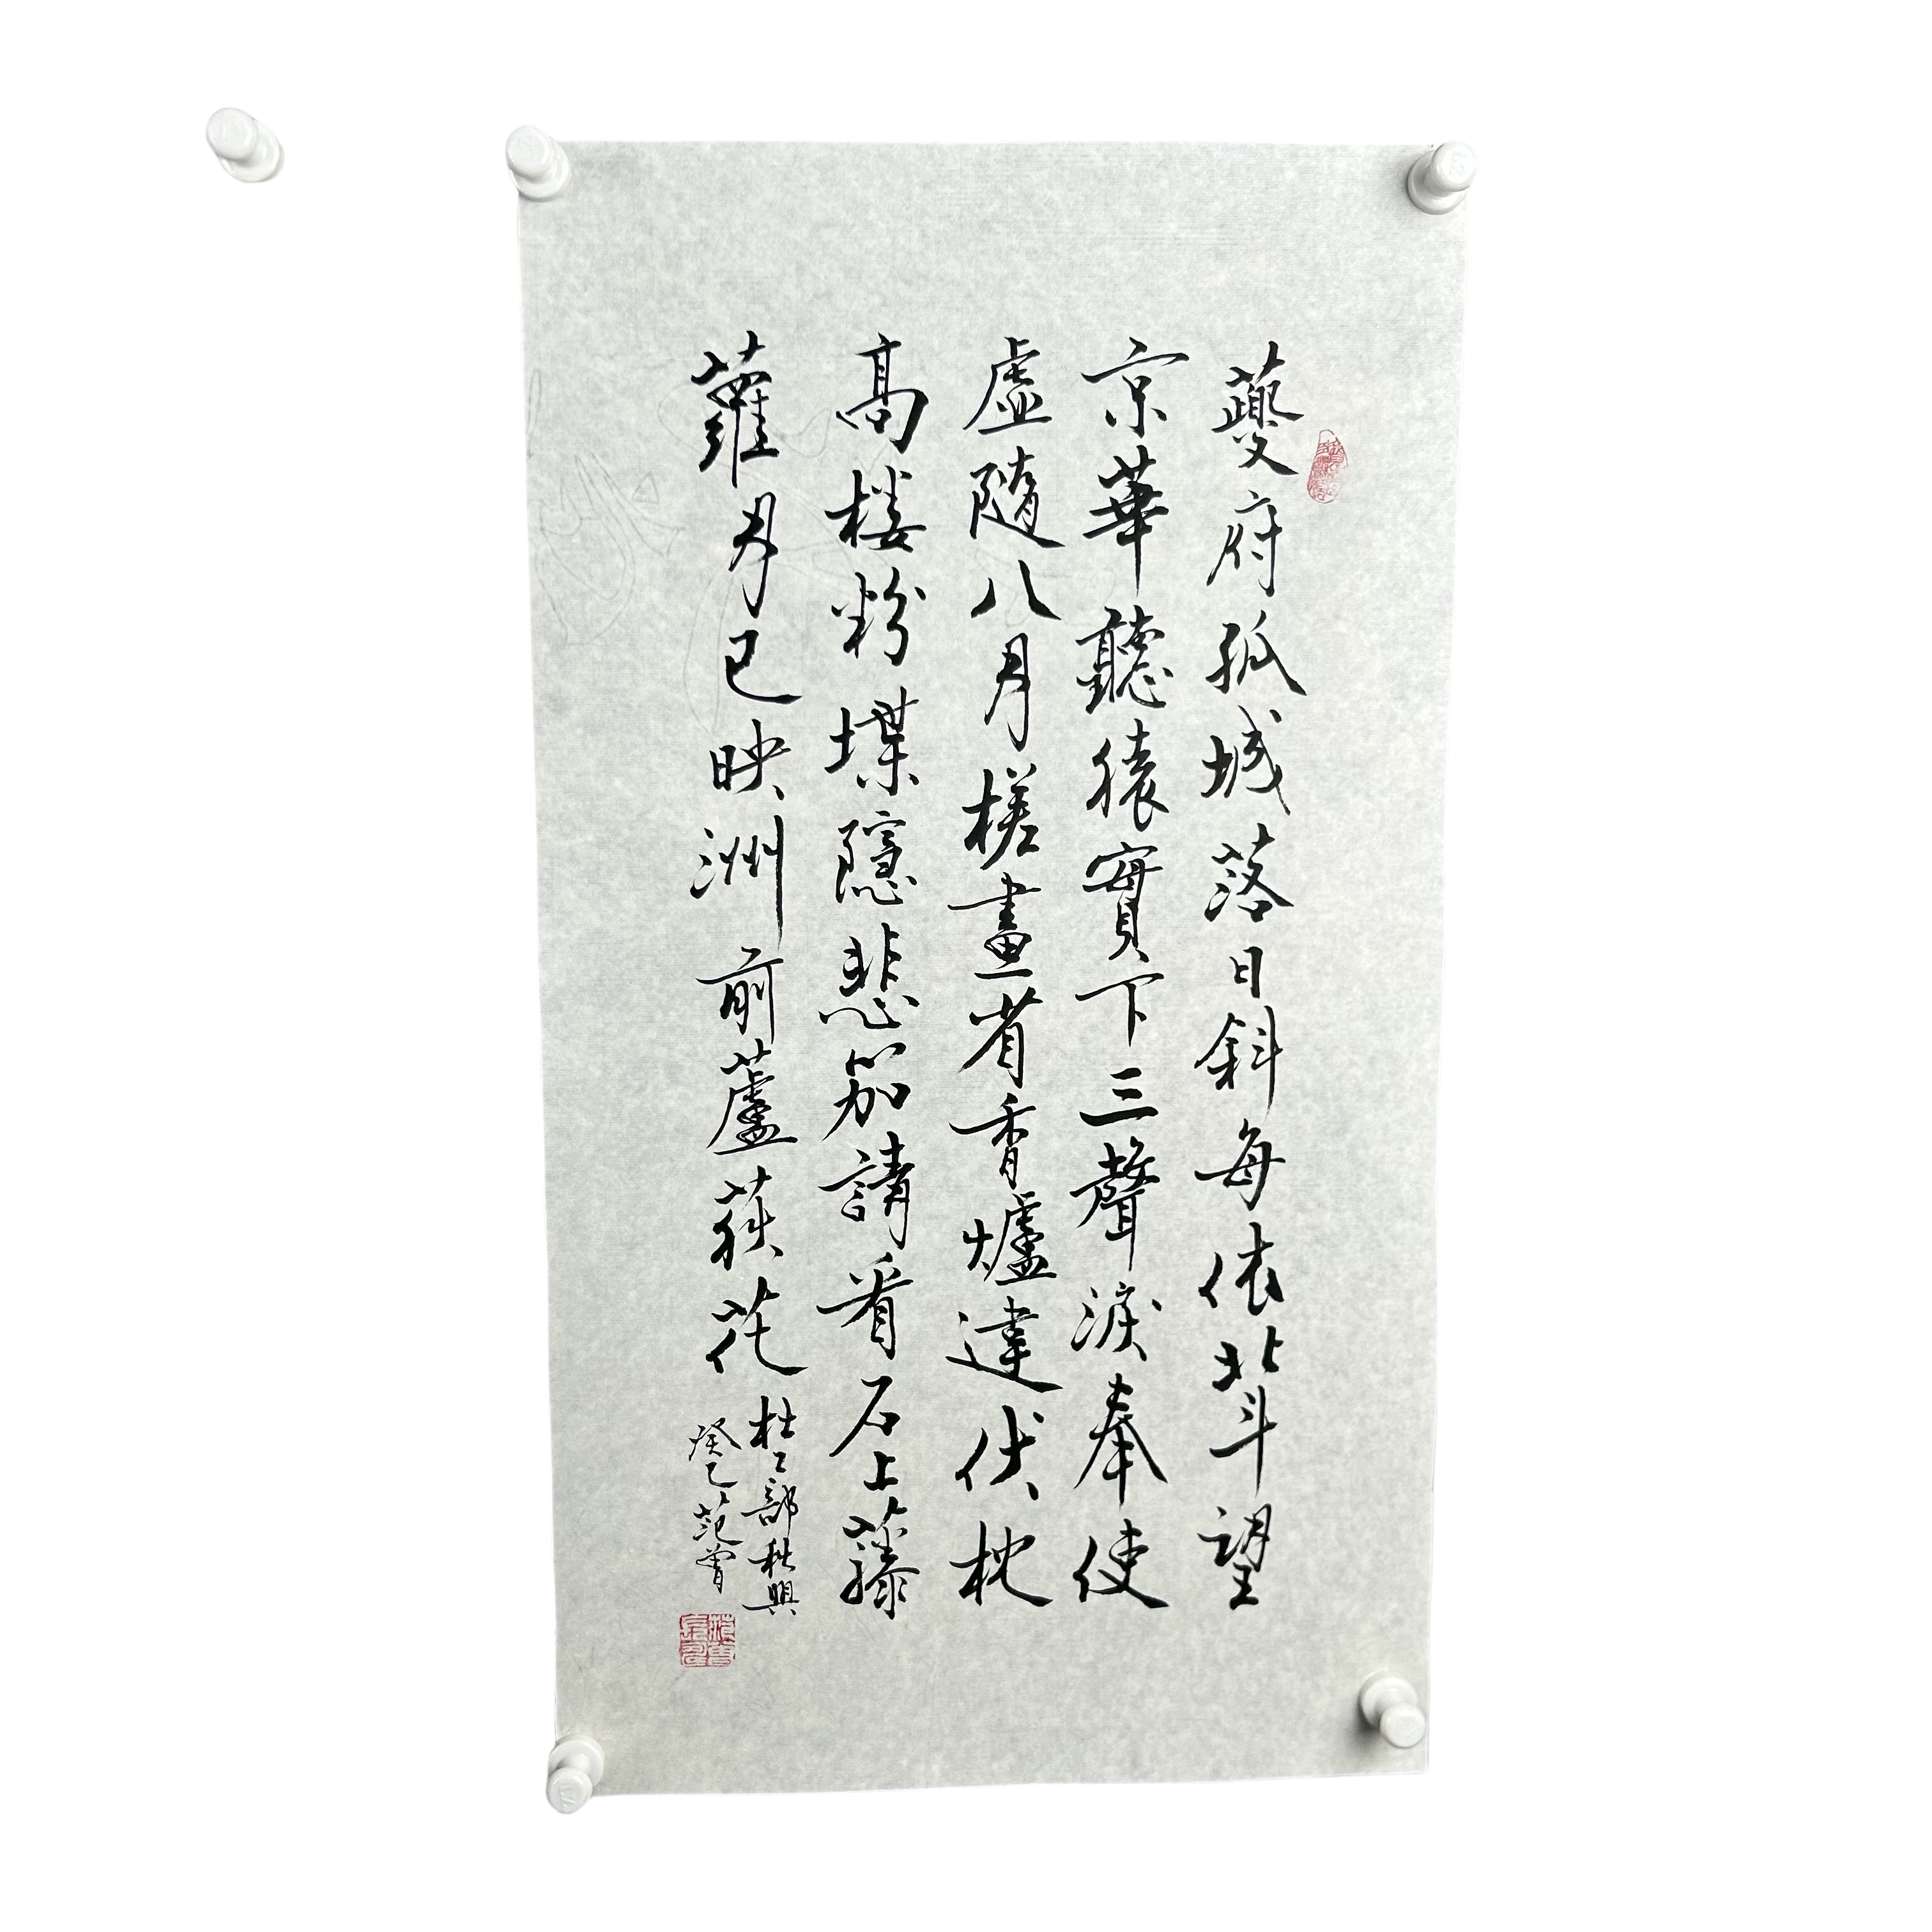 夔府孤城落日斜每依北斗望
京華聽猿實下三聲淚奉使
虛隨八月槎畫省香爐違伏枕
高楼粉堞隱悲笳請看石上藤
蘿月已映洲前蘆荻花
杜工部秋興
癸巳范曾